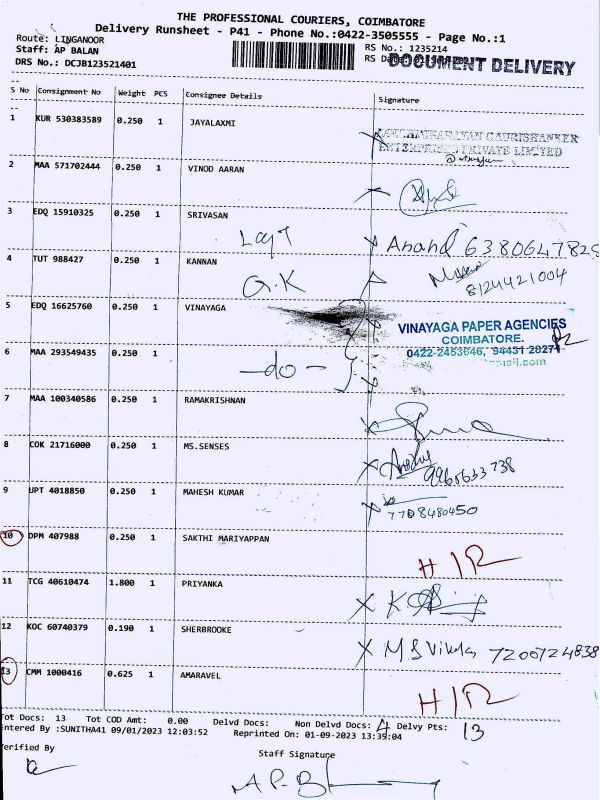 THE PROFESSIONAL COURIERS, COIMBATORE
Delivery Runsheet - P41 - Phone No.:0422-3505555 - Page No.:1
Route: LINGANOOR
RS No.: 1235214
Staff: AP BALAN
RS Da
DOCUMENT DELIVERY
DRS No.: DCJB123521401
S No Consignment No Weight PCS Consignee Details Signature
1 KUR 530383589 0.250 1 JAYALAXMI
GAURISHANKER
ENTERPRISES PRIVATE LIMITED
2 MAA 571702444 0.250 1 VINOD AARAN
3 EDQ 15910325 0.250 1 SRIVASAN
Anand 6380647825
4 TUT 988427 0.250 1 KANNAN
G.K
8124421004
5 EDQ 16625760 0.250 1 VINAYAGA
VINAYAGA PAPER AGENCIES
COIMBATORE.
0422-2453646, 94431 28271
6 MAA 293549435 0.250 1
-do-
7 MAA 100340586 0.250 1 RAMAKRISHNAN
8 COK 21716000 0.250 1 MS.SENSES
9965633738
9 UPT 4018850 0.250 1 MAHESH KUMAR
7708480450
10 DPM 407988 0.250 1 SAKTHI MARIYAPPAN
H/R
11 TCG 40610474 1.800 1 PRIYANKA
12 KOC 60740379 0.190 1 SHERBROOKE
7200724838
13 CMM 1000416 0.625 1 AMARAVEL
H/R
Tot Docs: 13 Tot COD Amt: 0.00 Delvd Docs: Non Delvd Docs: Delvy Pts: 13
Entered By :SUNITHA41 09/01/2023 12:03:52 Reprinted On: 01-09-2023 13:35:04
Verified By
Staff Signature